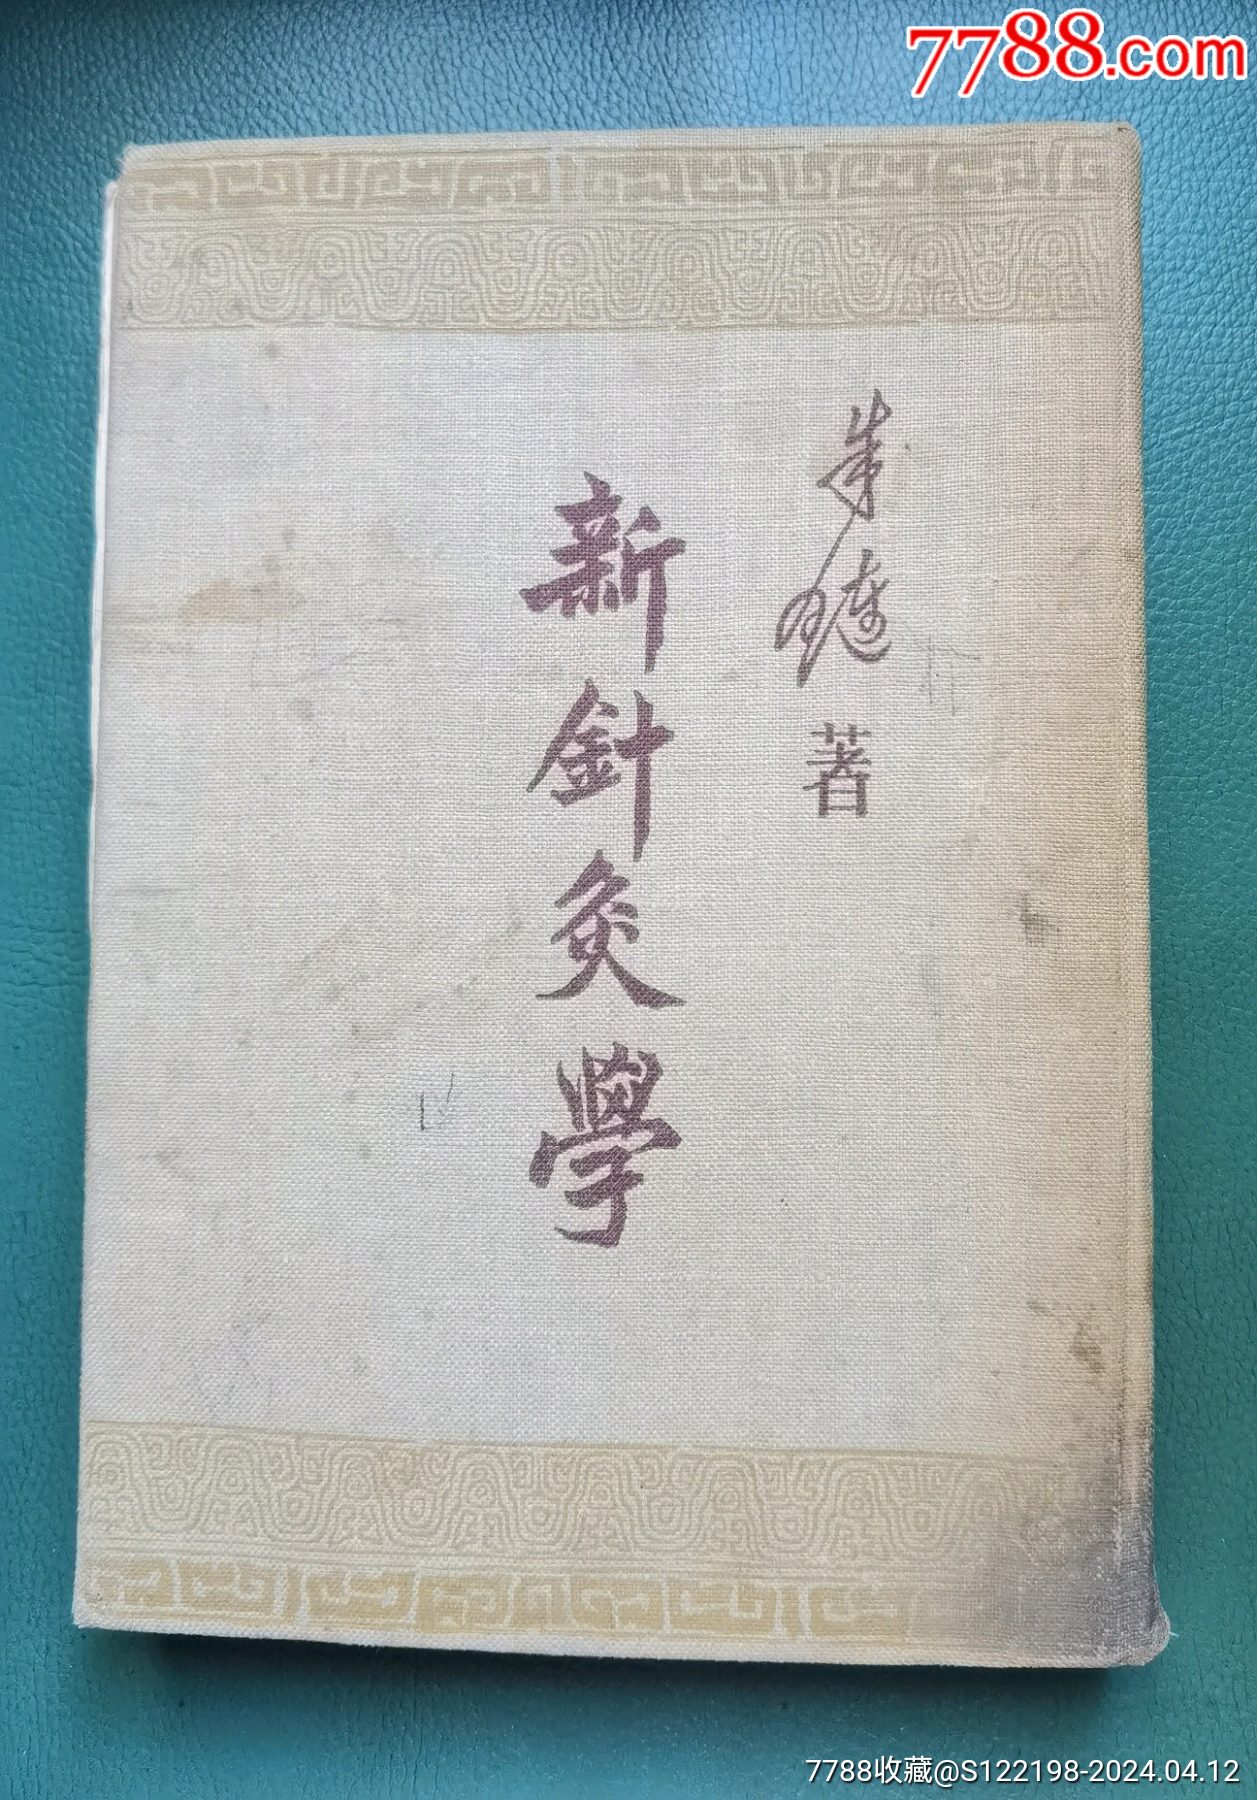 7788.com
朱璉
著
新針灸學
7788收藏@S122198-2024.04.12